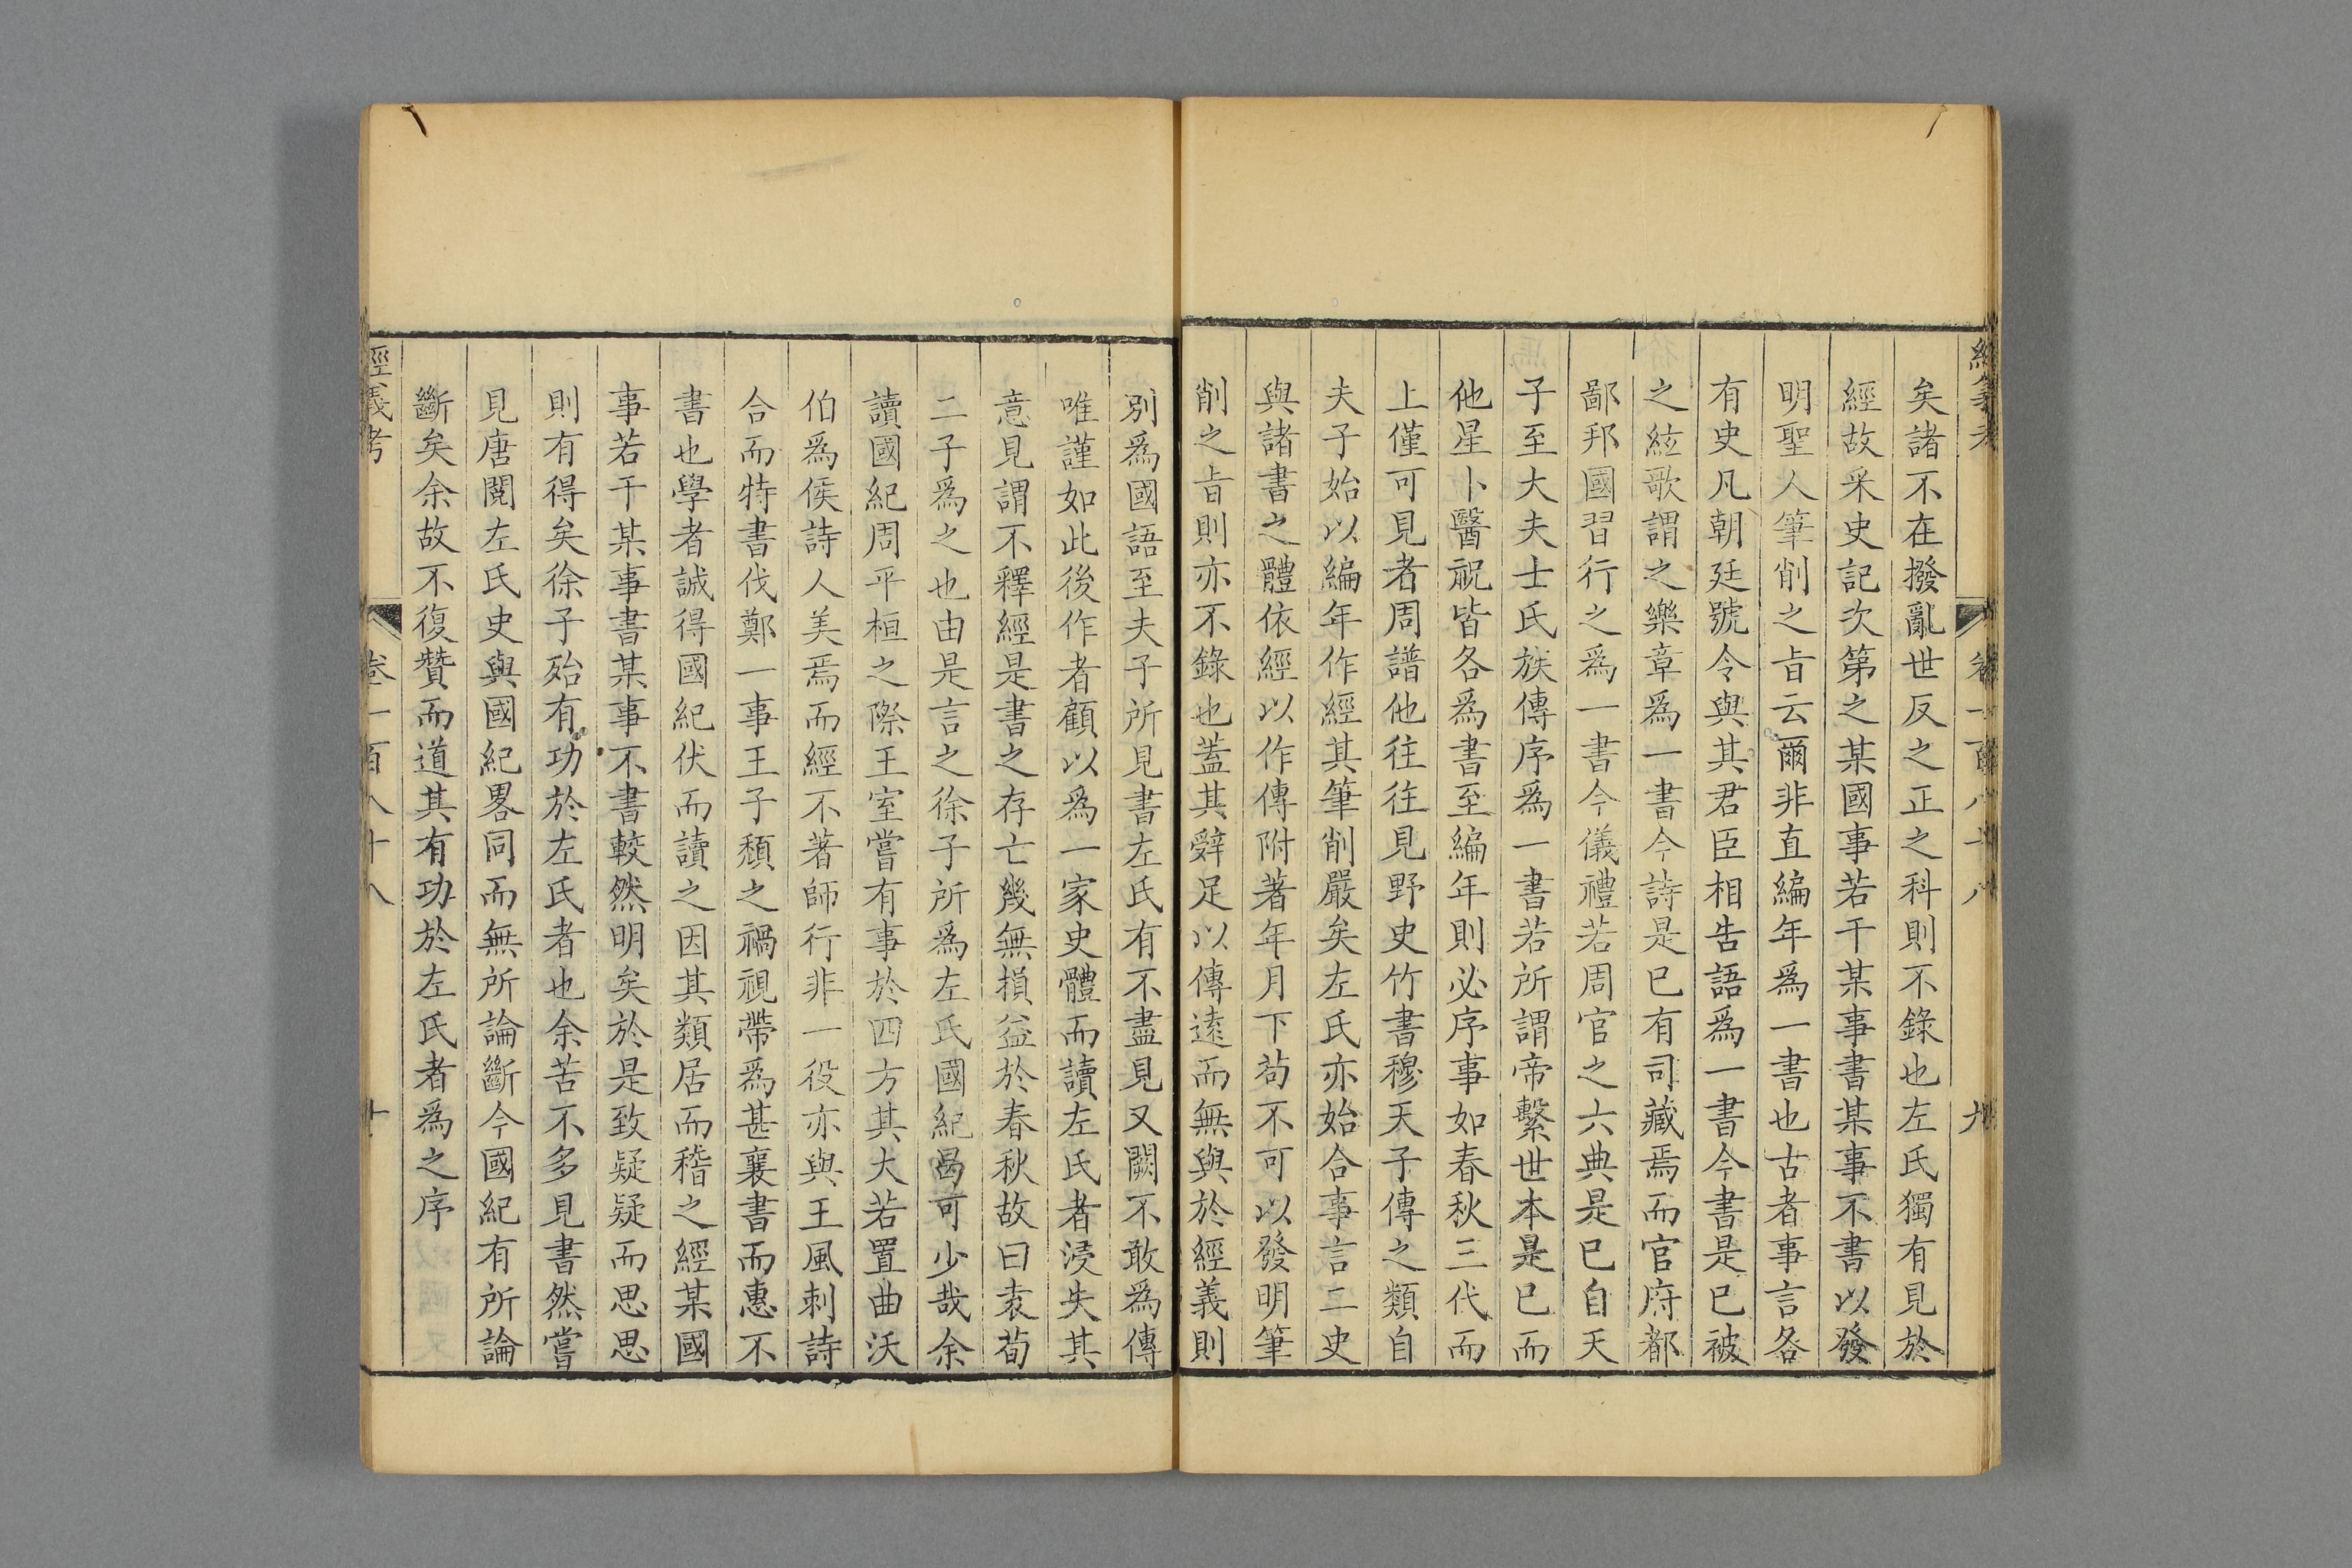 矣諸不在撥亂世反之正之科則不錄也左氏獨有見於
經故采史記次第之某國事若干某事書某事不書以發
明聖人筆削之㫖云爾非直編年爲一書也古者事言各
有史凡朝廷號令與其君臣相告語爲一書今書是已被
之絃歌謂之樂章爲一書今詩是已有司藏焉而官府都
鄙邦國習行之爲一書今儀禮若周官之六典是已自天
子至大夫士氏族傳序爲一書若所謂帝繫世本是已而
他星卜醫祝皆各爲書至編年則必序事如春秋三代而
上僅可見者周譜他往往見野史竹書穆天子傳之類自
夫子始以編年作經其筆削嚴矣左氏亦始合事言二史
與諸書之體依經以作傳附著年月下苟不可以發明筆
削之㫖則亦不錄也蓋其辭足以傳遠而無與於經義則
別爲國語至夫子所見書左氏有不盡見又闕不敢爲傳
唯謹如此後作者顧以爲一家史體而讀左氏者浸失其
意見謂不釋經是書之存亡幾無損益於春秋故曰袁荀
二子爲之也由是言之徐子所爲左氏國紀曷可少哉余
讀國紀周平桓之際王室嘗有事於四方其大若置曲沃
伯爲侯詩人美焉而經不著師行非一役亦與王風刺詩
合而特書伐鄭一事王子頹之禍視帶爲甚襄書而惠不
書也學者誠得國紀伏而讀之因其類居而稽之經某國
事若干某事書某事不書較然明矣於是致疑疑而思思
則有得矣徐子殆有功於左氏者也余苦不多見書然嘗
見唐閱左氏史與國紀畧同而無所論斷今國紀有所論
斷矣余故不復贊而道其有功於左氏者爲之序
經義考
卷一百八十八
十